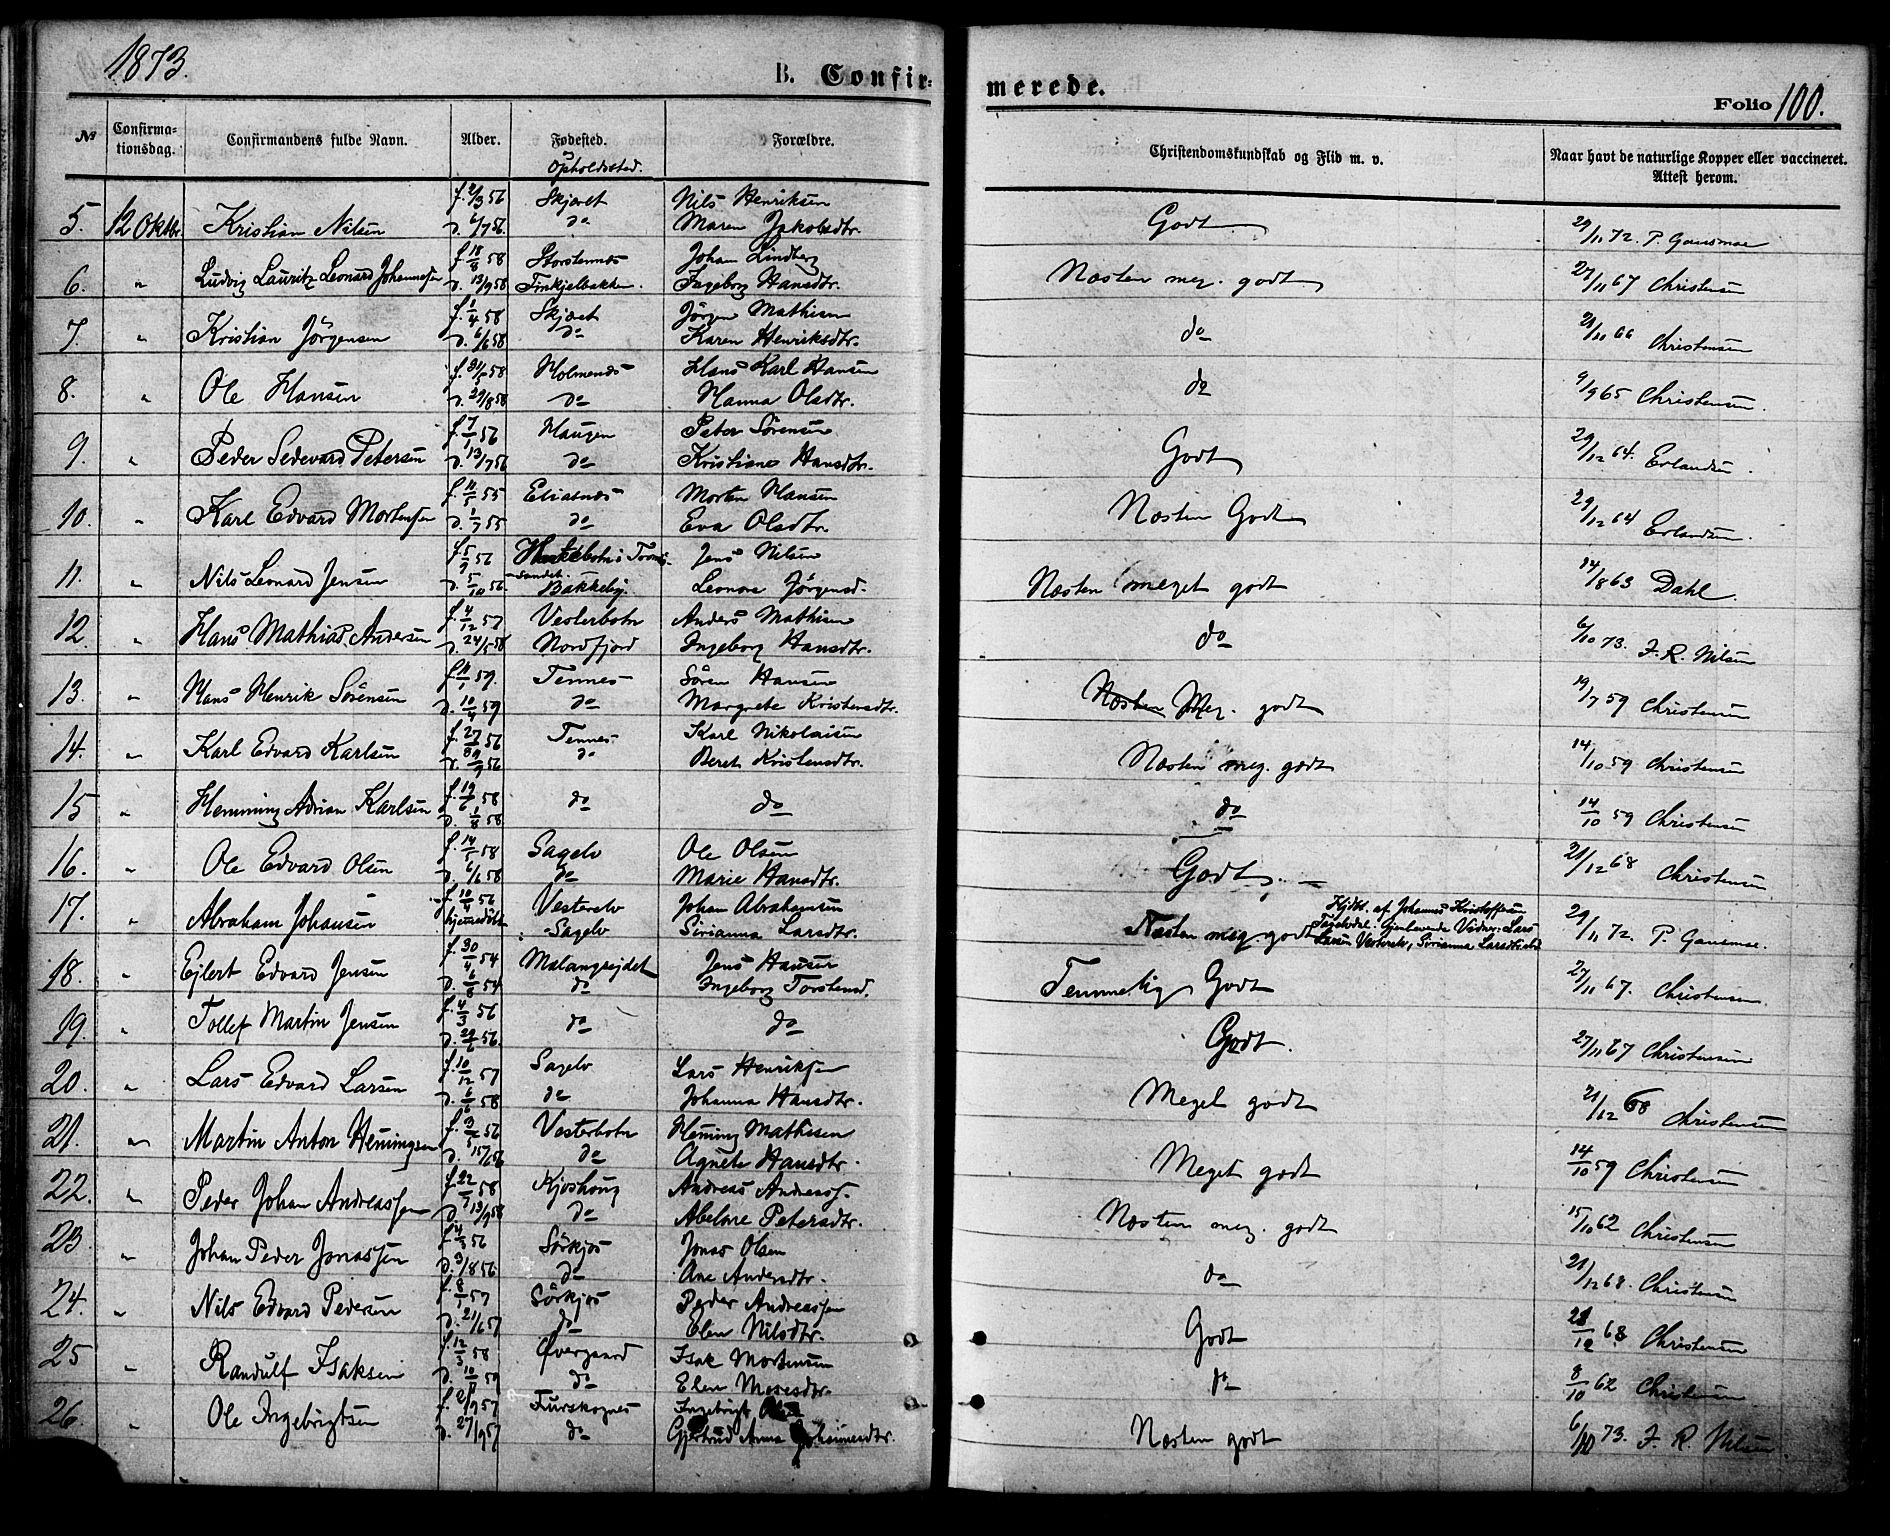 1873.
B. Confir-
merede.
Folio 100.
№ Confirma-tionsdag. Confirmandens fulde Navn. Alder. Fødested. Opholdssted. Forældre. Christendomskundskab og Flid m. v. Naar havt de naturlige Kopper eller vaccineret. Attest herom.
5. 12 Oktbr. Kristian Nilsen f. 2/3 56 d. 6/7 56. Skjæret do Nils Henriksen Maren Jakobsdtr. Godt 29/11 72. P. Gansmoe
6. " Ludvig Lauritz Leonard Johannesen f. 18/8 58 d. 13/9 58 Storstennes Johan Lindberg Ingeborg Hansdtr. Næsten meg. godt 27/11 67 Christensen
7. " Kristian Jörgensen f. 1/4 58 d. 6/6 58 Skjæret do Jörgen Mathisen Karen Henriksdtr. do 21/11 66 Christensen
8. " Ole Hansen f. 31/5 58 d. 29/8 58 Holmenes do Hans Karl Hansen Hanna Olsdtr. do 9/9 65 Christensen.
9. " Peder Sedevard Petersen f. 7/1 56 d. 13/7 56 Haugen do Peter Sörensen Kristiane Hansdtr. Godt 29/12 64. Erlandsen.
10. " Karl Edvard Mortensen f. 11/5 55 d. 1/7 55 Eliasnes do Morten Hansen Eva Olsdtr Næsten Godt 29/12 64 Erlandsen.
11. " Nils Leonard Jensen f. 5/9 56 d. 5/10 56. Bakkeby. Jens Nilsen Leonora Jörgensd. Næsten meget godt 14/8 63 Dahl.
12 " Hans Mathias Andersen f. 4/12 57 d. 24/5 58 Vesterbotn Nordfjord Anders Mathisen Ingeborg Hansdtr. do 6/10 73. F. R. Nilsen
13. " Hans Henrik Sörensen f. 11/1 59. d. 10/4 59 Tennes do Sören Hansen Margrete Kristensdtr. Næsten Meg. godt 19/7 59 Christensen
14. " Karl Edvard Karlsen f. 27/8 56 Tennes do Karl Nikolaisen Beret Kristensdtr. Næsten meg. godt 14/10 59 Christensen
15 " Hemming Adrian Karlsen f. 19/6 58 d. 1/8 58 do do do 14/10 59 Christensen
16. " Ole Edvard Olsen f. 14/5 58 d. 6/6 58 Sagelv do Ole Olsen Marie Hansdtr. Godt. 21/12 68 Christensen
17. " Abraham Johansen f. 10/4 56 hjemedöbt Vesterelv Sagelv Johan Abrahamsen Sirianna Larsdtr. Næsten meg. godt Hjdbt. af Johannes Kristoffersen Sagelvdal. Gjenlevende Vidner: Lars Larsen Vesterelv, Sirianna Larsdtr. 29/11 72. P. Gansmoe.
18. " Ejlert Edvard Jensen f. 30/4 54 d. 6/8 54 Malangsejdet do Jens Hansen Ingeborg Torstensd. Temmelig Godt 27/11 67. Christensen.
19. " Tollef Martin Jensen f. 4/3 56 d. 29/6 56. do do Godt. 27/11 67 Christensen
20. " Lars Edvard Larsen f. 10/12 57 d. 6/6 58 Sagelv do Lars Henriksen Johanna Hansdtr. Meget godt 21/12 68 Christensen
21. " Martin Anton Hemingsen f. 3/5 56 d. 15/6 56 Vesterbotn do Heming Mathisen Agnete Hansdtr. Meget godt 14/10 59 Christensen
22. " Peder Johan Andreassen f. 22/7 58 d. 13/9 58 Kjoshoug do Andreas Andreass. Abelone Petersdtr. Næsten meg. godt 15/10 62 Christensen
23. " Johan Peder Jonassen f. 4/5 56 d. 3/8 56. Sörkjos do Jonas Olsen Ane Andersdtr. do 21/12 68. Christensen
24. " Nils Edvard Pedersen f. 8/1 57 d. 21/6 57 Sörkjos do Peder Andreassen Elen Nilsdtr. Godt 21/12 68. Christensen
25 " Randulf Isaksen f. 12/3 58 Övergaard do Isak Mortensen Elen Mosesdtr. do 8/10 62 Christensen
26. " Ole Ingebrigtsen d. 27/9 57 do Ingebrigt Gjertrud Anna Johannesdtr. Næsten godt 6/10 73. F. R. Nilsen